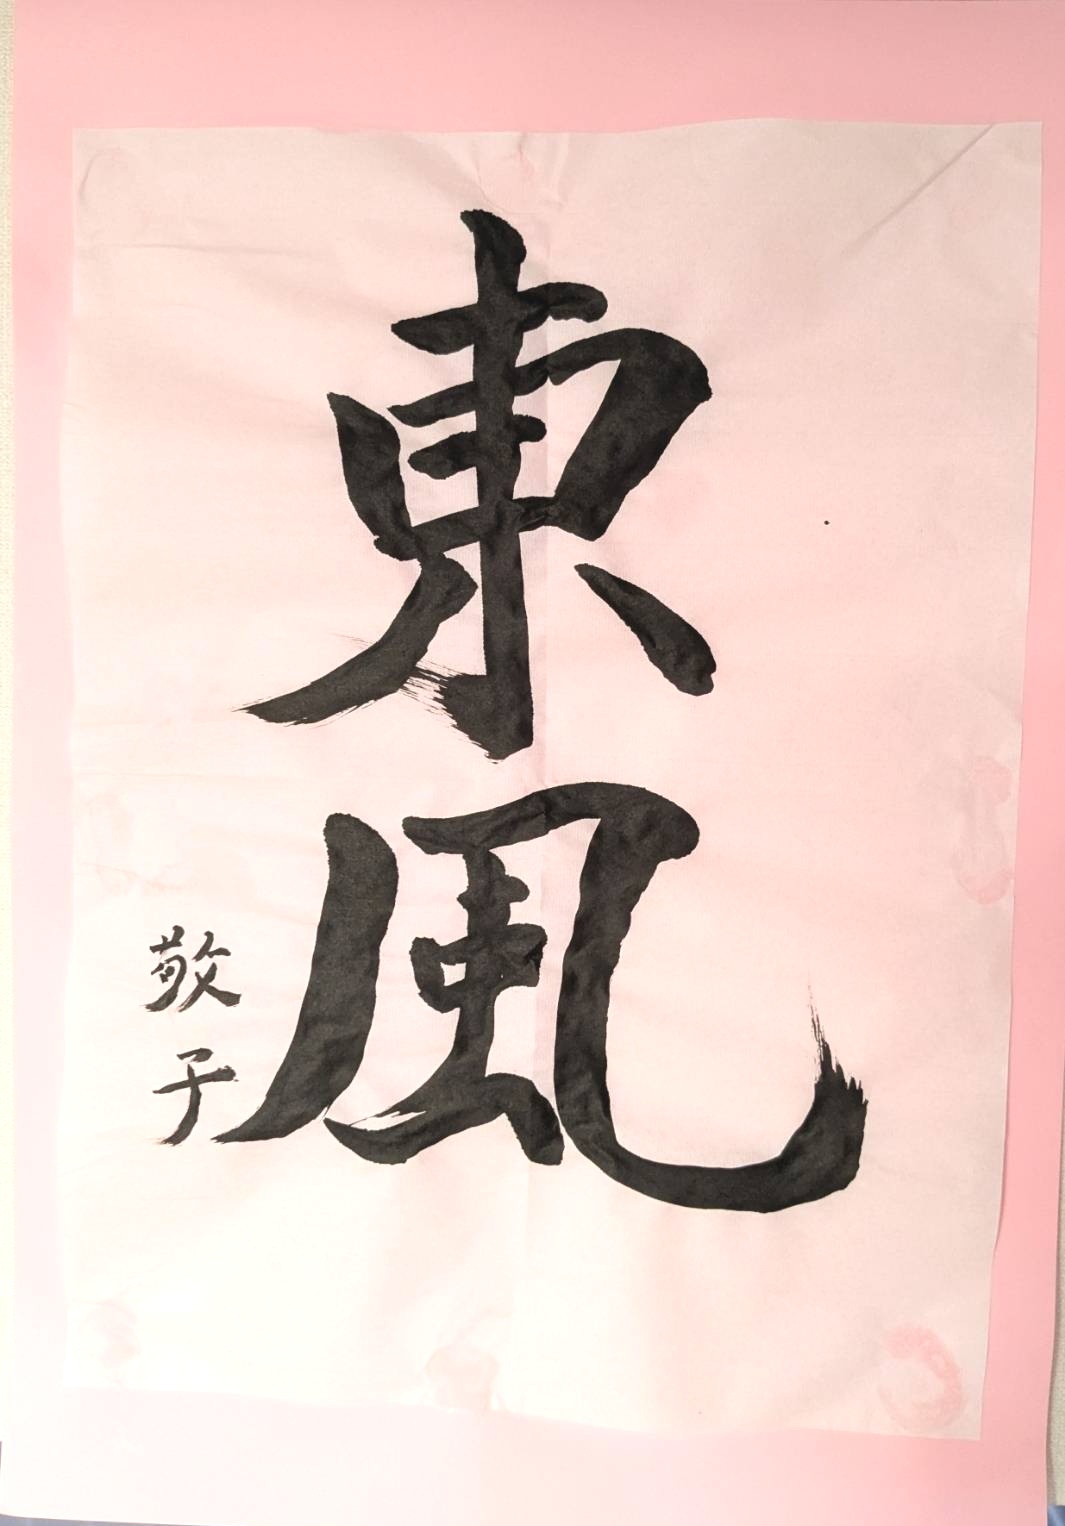 東風
敬子